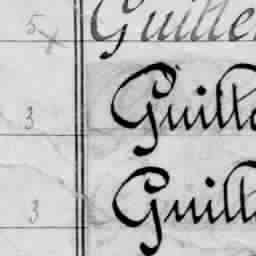 5 Guiller
3 Guille
3 Guill